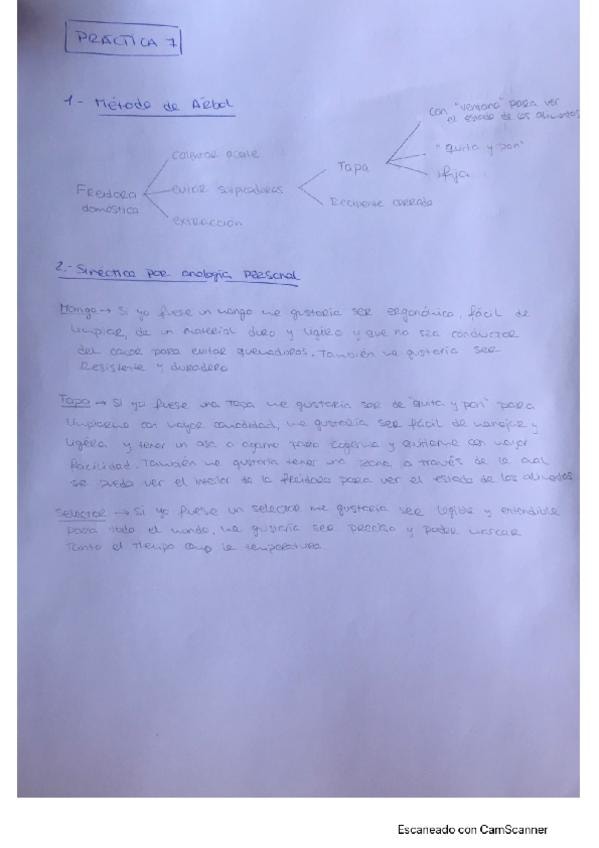 PRÁCTICA 7
1- Método de Árbol
con "ventana" para ver
el estado de los alimentos
calentar aceite
"quita y pon"
Tapa
fija
Freidora
doméstica
evitar salpicaduras
Recipiente cerrado
extracción
2.- Sinéctica por analogía personal
Mango → Si yo fuese un mango me gustaría ser ergonómico, fácil de
limpiar, de un material duro y ligero y que no sea conductor
del calor para evitar quemaduras. También me gustaría ser
Resistente y duradero
Tapa → Si yo fuese una Tapa me gustaría ser de "quita y pon" para
limpiarme con mayor comodidad, me gustaría ser fácil de manejar y
ligera y tener un asa o agarre para cogerme y quitarme con mayor
facilidad. También me gustaría tener una zona a través de la cual
se pueda ver el interior de la freidora para ver el estado de los alimentos
Selector → Si yo fuese un selector me gustaría ser legible y entendible
para todo el mundo, me gustaría ser preciso y poder marcar
tanto el tiempo como la temperatura.
Escaneado con CamScanner